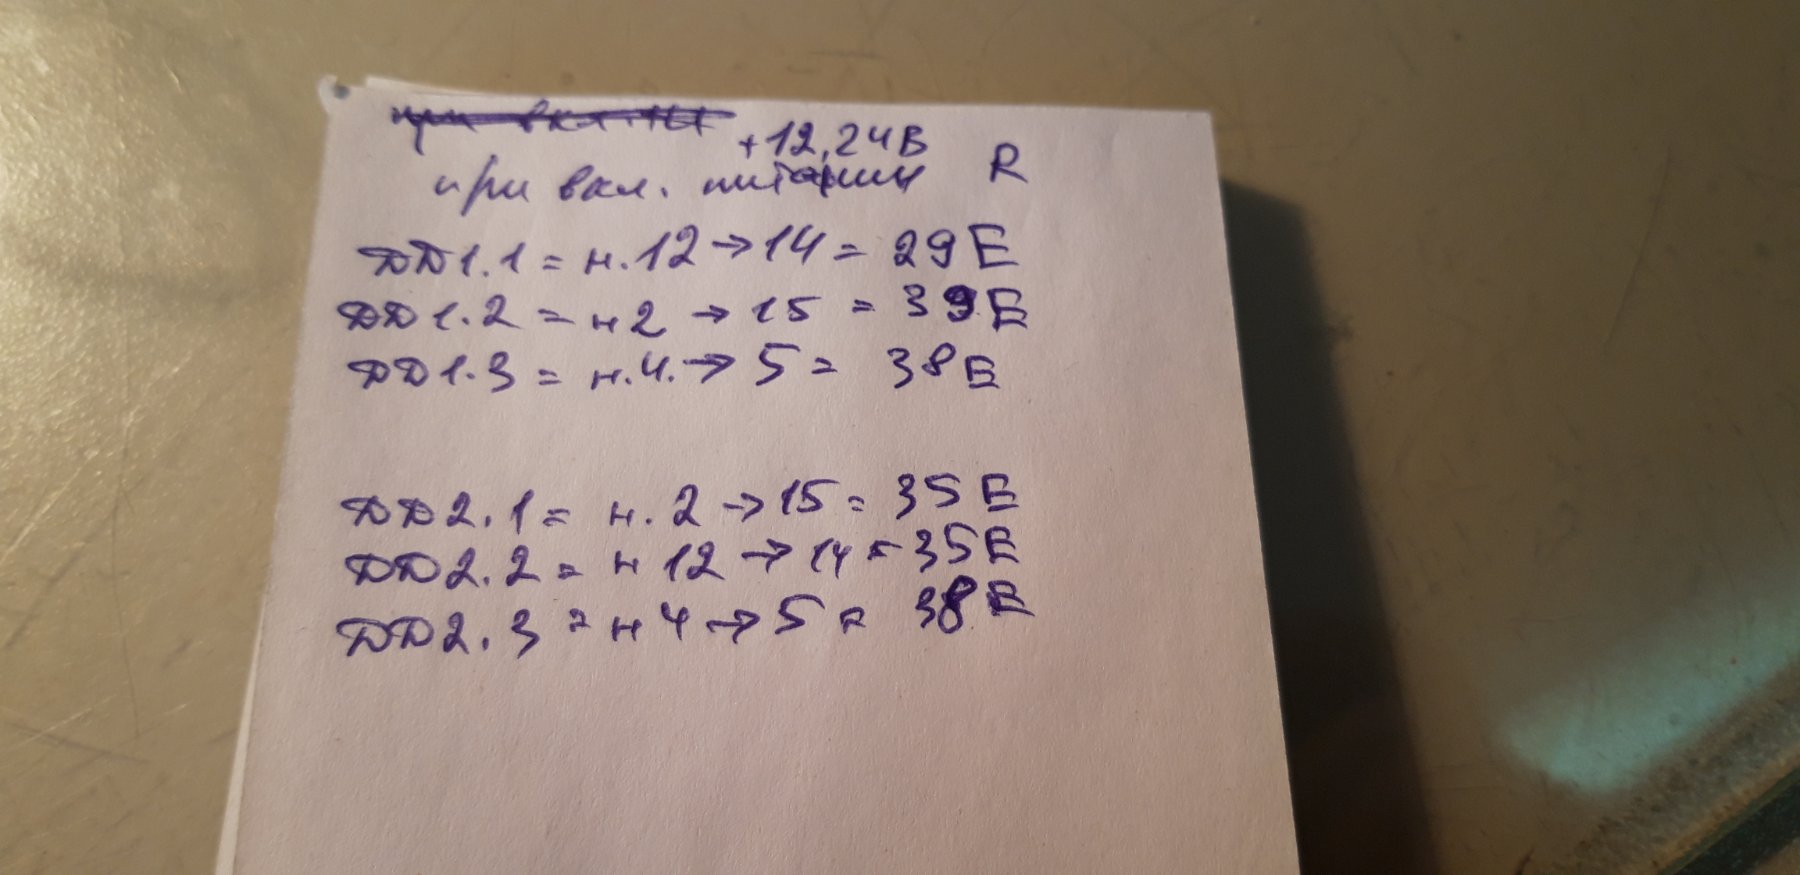 +12,24В
при вкл. питании R
DD1.1 = н.12 → 14 = 29E
DD1.2 = н2 → 15 = 39E
DD1.3 = н.4. → 5 = 38E
DD2.1 = н.2 → 15 = 35E
DD2.2 = н12 → 14 = 35E
DD2.3 = н4 → 5 = 38E